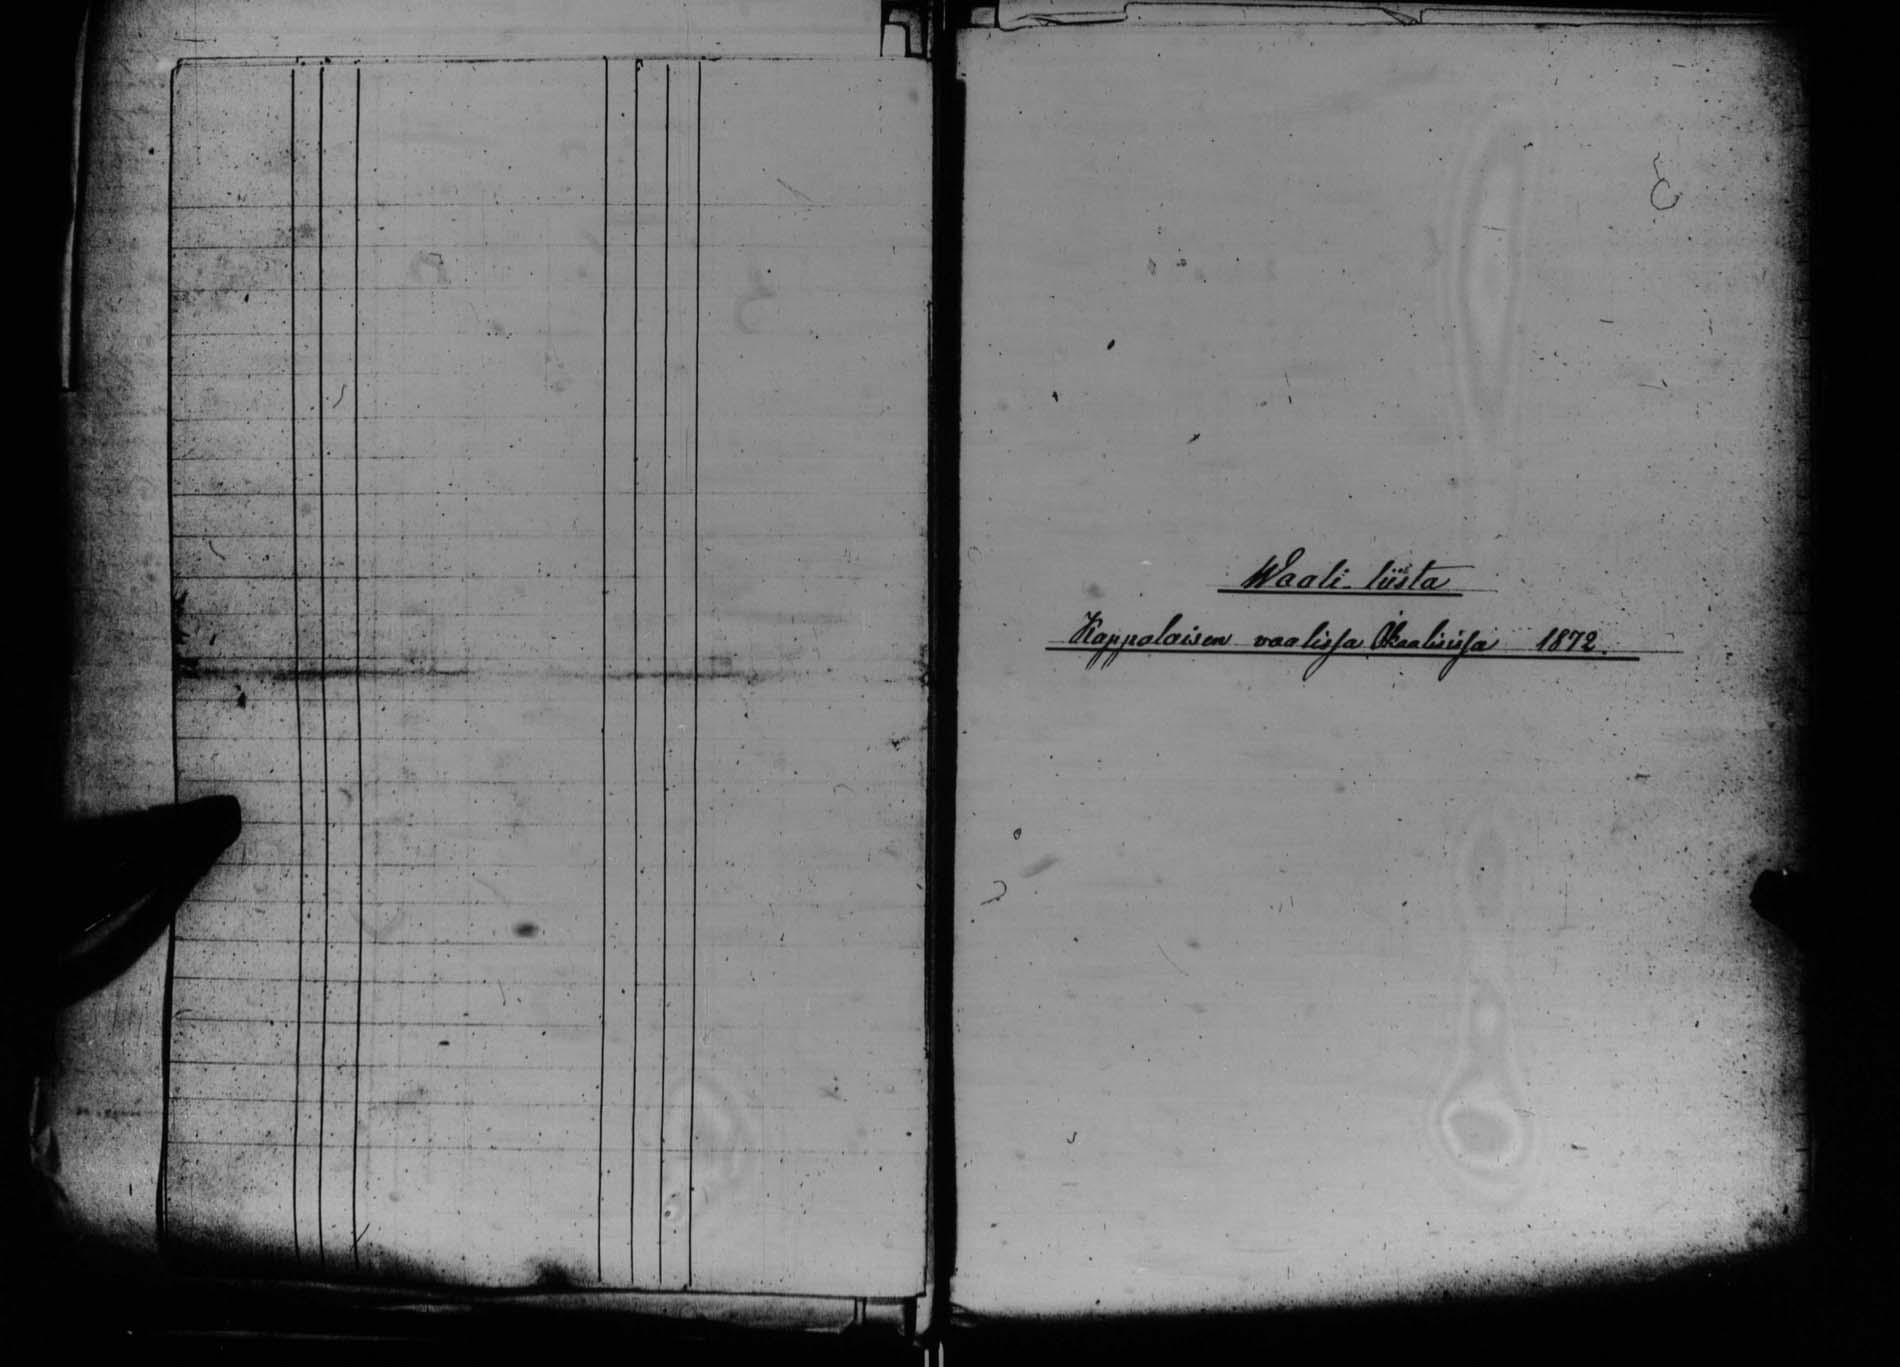 Waali-liista
Kappalaisen vaalissa Ikaalisissa 1872.